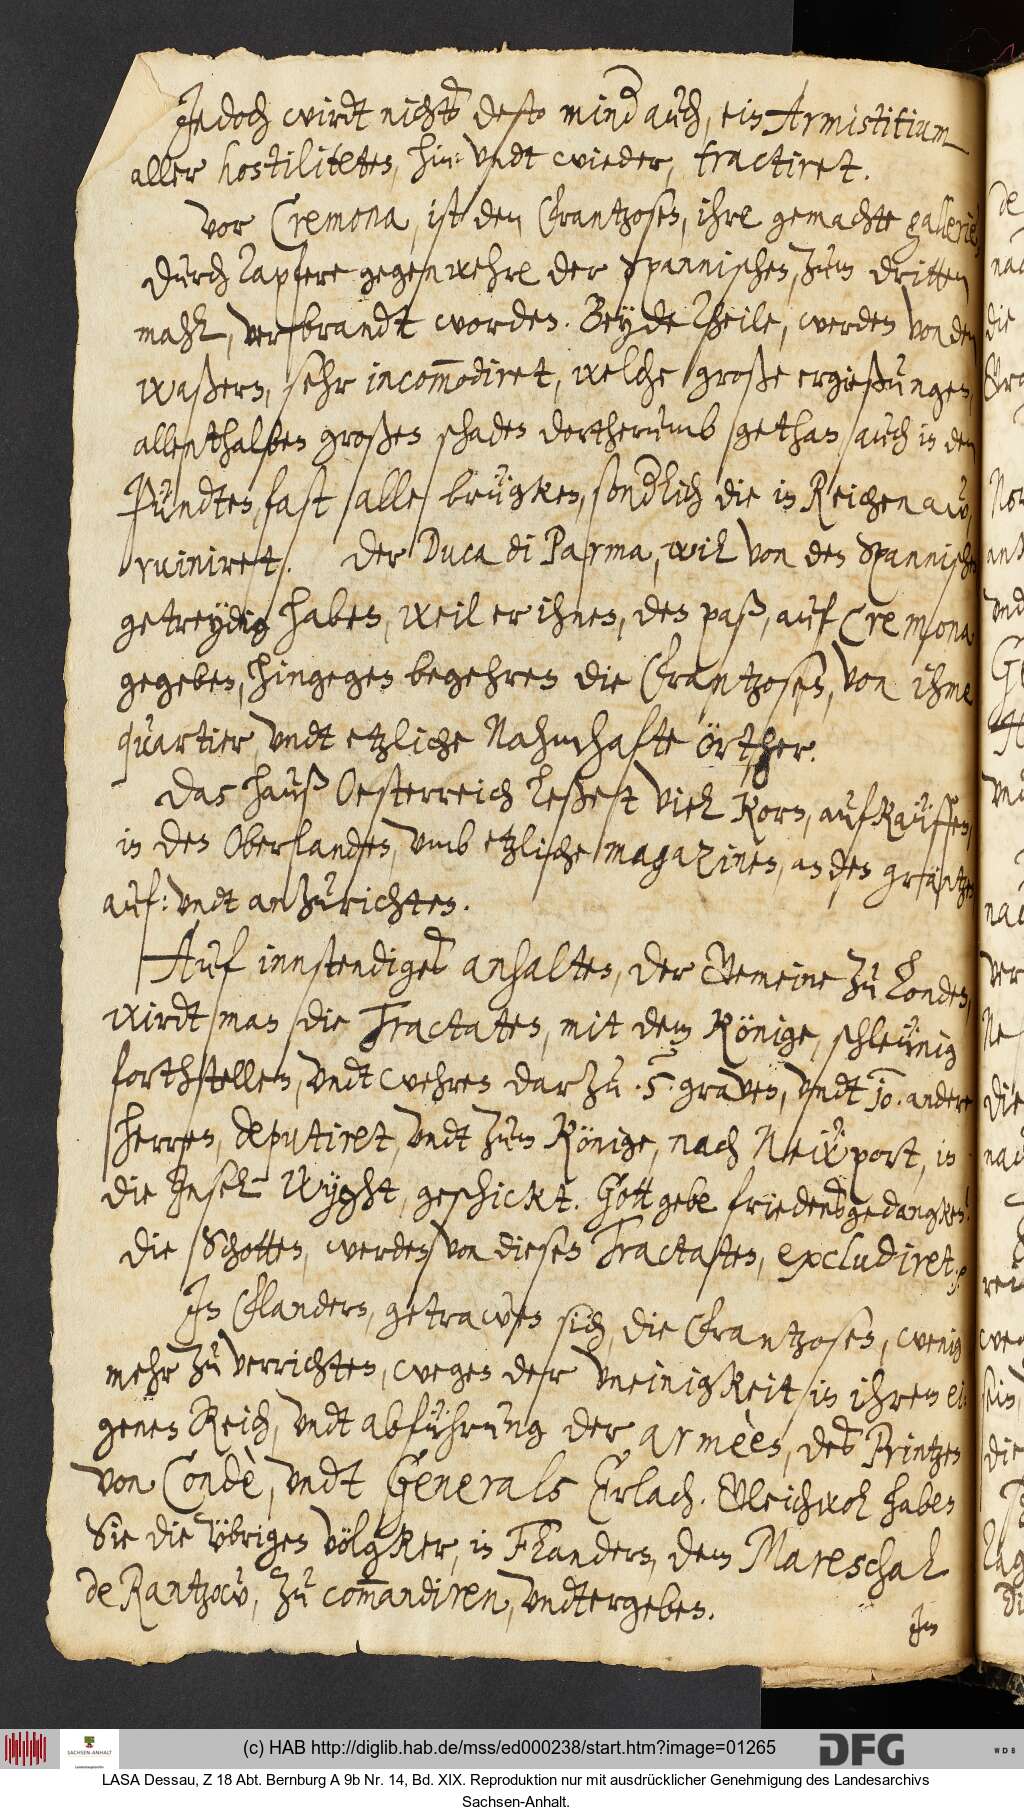 Jedoch wirdt nichts desto mind auch, ein Armistitium
aller hostiliteten, hin: undt wieder, tractiret.
Vor Cremona, ist den Frantzosen, ihre gemachte gallerien
durch Tapfere gegenwehre der Spannischen, zum dritten
mahl, verbrandt worden. Beyde Theile, werden von den
waßern, sehr incom̅odiret, welche große ergießungen,
allenthalben großen schaden dortherumb gethan, auch in den
Pündten, fast alle brügken, sonderlich die in Reichenaw,
ruiniret. Der Duca di Parma, will von den Spannischen
getreydig haben, weil er ihnen, den paß, auf Cremona
gegeben, hingegen begehren die Frantzosen, von ihme
quartier, undt etzliche Nahmhafte örther.
Das hauß Oesterreich leßest viel Korn, aufkauffen,
in den Oberlanden, umb etzliche magazinen, an den gräntzen
auf: undt anzurichten.
Auf innstendiges anhalten, der Gemeine zu Londen,
wirdt man die Tractaten, mit dem Könige, schleünig
forthstellen, undt wehren darzu .5. graven, undt 10. andere
herren, deputiret, undt zum Könige, nach Neüport, in
die Insel Wyght, geschickt. Gott gebe friedensgedangken!
Die Schotten, werden von diesen Tractaten, excludiret.
In Flandern, getrawen sich, die Frantzosen, wenig
mehr zu verrichten, wegen der uneinigkeit in ihrem ei:
genen Reich, undt abführung der armèen, des Printzen
von Condè, undt Generals Erlach. Gleichwol haben
Sie die übrigen völgker, in Flandern, dem Mareschal
de Rantzow, zu com̅andiren, undtergeben.
Im
(c) HAB http://diglib.hab.de/mss/ed000238/start.htm?image=01265
SACHSEN-ANHALT
DFG
WDB
LASA Dessau, Z 18 Abt. Bernburg A 9b Nr. 14, Bd. XIX. Reproduktion nur mit ausdrücklicher Genehmigung des Landesarchivs
Sachsen-Anhalt.